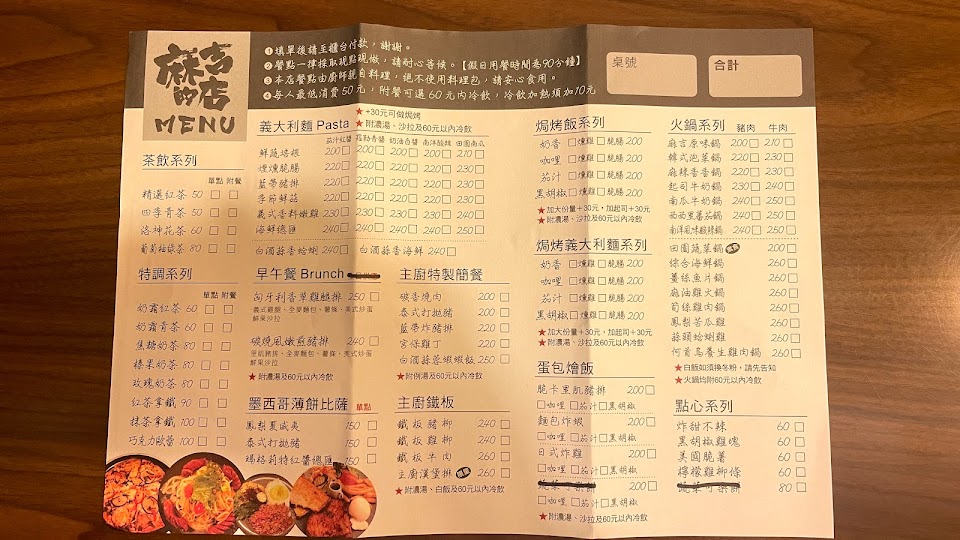 麻吉的店
MENU
❶填單後請至櫃台付款，謝謝。
❷餐點一律採取現點現做，請耐心等候。【假日用餐時間為90分鐘】
❸本店餐點由廚師親自料理，絕不使用料理包，請安心食用。
❹每人最低消費50元，附餐可選60元內冷飲，冷飲加熱須加10元
桌號
合計
茶飲系列
單點 附餐
精選紅茶 50 □ □
四季青茶 50 □ □
洛神花茶 60 □ □
葡萄柚綠茶 80 □ □
特調系列
單點 附餐
奶霜紅茶 60 □ □
奶霜青茶 60 □ □
焦糖奶茶 80 □ □
榛果奶茶 80 □ □
玫瑰奶茶 80 □ □
紅茶拿鐵 90 □ □
抹茶拿鐵 100 □ □
巧克力歐蕾 100 □ □
義大利麵 Pasta
★+30元可做焗烤
★附濃湯、沙拉及60元以內冷飲
茄汁紅醬 羅勒青醬 奶油白醬 南洋酸辣 田園南瓜
鮮蔬培根 200□ 200□ 200□ 200□ 210□
煙燻脆腸 220□ 220□ 220□ 220□ 220□
藍帶豬排 220□ 220□ 220□ 220□ 220□
季節鮮菇 200□ 220□ 220□ 220□ 220□
義式香料嫩雞 230□ 230□ 230□ 230□ 240□
海鮮總匯 240□ 240□ 240□ 240□ 250□
白酒蒜香蛤蜊 240□ 白酒蒜香海鮮 240□
早午餐 Brunch
匈牙利香草雞腿排 250 □
義式雞腿、全麥麵包、薯條、美式炒蛋
鮮果沙拉
碳燒風嫩煎豬排 240 □
里肌豬排、全麥麵包、薯條、美式炒蛋
鮮果沙拉
★附濃湯及60元以內冷飲
墨西哥薄餅比薩 單點
鳳梨夏威夷 150 □
泰式打拋豬 150 □
瑪格莉特紅醬總匯 150 □
主廚特製簡餐
碳香燒肉 200 □
泰式打拋豬 200 □
藍帶炸豬排 220 □
宮保雞丁 220 □
白酒蒜蓉蝦蝦飯 250 □
★附例湯及60元以內冷飲
主廚鐵板
鐵板豬柳 240 □
鐵板雞柳 240 □
鐵板牛肉 260 □
主廚漢堡排 260 □
★附濃湯、白飯及60元以內冷飲
焗烤飯系列
奶香 □燻雞 □脆腸 200
咖哩 □燻雞 □脆腸 200
茄汁 □燻雞 □脆腸 200
黑胡椒 □燻雞 □脆腸 200
★加大份量+30元，加起司+30元
★附濃湯、沙拉及60元以內冷飲
焗烤義大利麵系列
奶香 □燻雞 □脆腸 200
咖哩 □燻雞 □脆腸 200
茄汁 □燻雞 □脆腸 200
黑胡椒 □燻雞 □脆腸 200
★加大份量+30元，加起司+30元
★附濃湯、沙拉及60元以內冷飲
蛋包燴飯
脆卡里肌豬排 200□
□咖哩 □茄汁 □黑胡椒
麵包炸蝦 200□
□咖哩 □茄汁 □黑胡椒
日式炸雞 200□
□咖哩 □茄汁 □黑胡椒
200□
□咖哩 □茄汁 □黑胡椒
★附濃湯、沙拉及60元以內冷飲
火鍋系列 豬肉 牛肉
麻吉原味鍋 200□ 210□
韓式泡菜鍋 220□ 230□
麻辣香香鍋 220□ 230□
起司牛奶鍋 230□ 240□
南瓜牛奶鍋 240□ 250□
西西里蕃茄鍋 240□ 250□
南洋風味酸辣鍋 240□ 250□
田園蔬菜鍋 200□
綜合海鮮鍋 260□
薑絲魚片鍋 260□
麻油雞火鍋 260□
筍絲雞肉鍋 260□
鳳梨苦瓜雞 260□
蒜頭蛤蜊雞 260□
何首烏養生雞肉鍋 260□
★白飯如須換冬粉，請先告知
★火鍋均附60元以內冷飲
點心系列
炸甜不辣 60 □
黑胡椒雞塊 60 □
美國脆薯 60 □
檸檬雞柳條 60 □
80 □